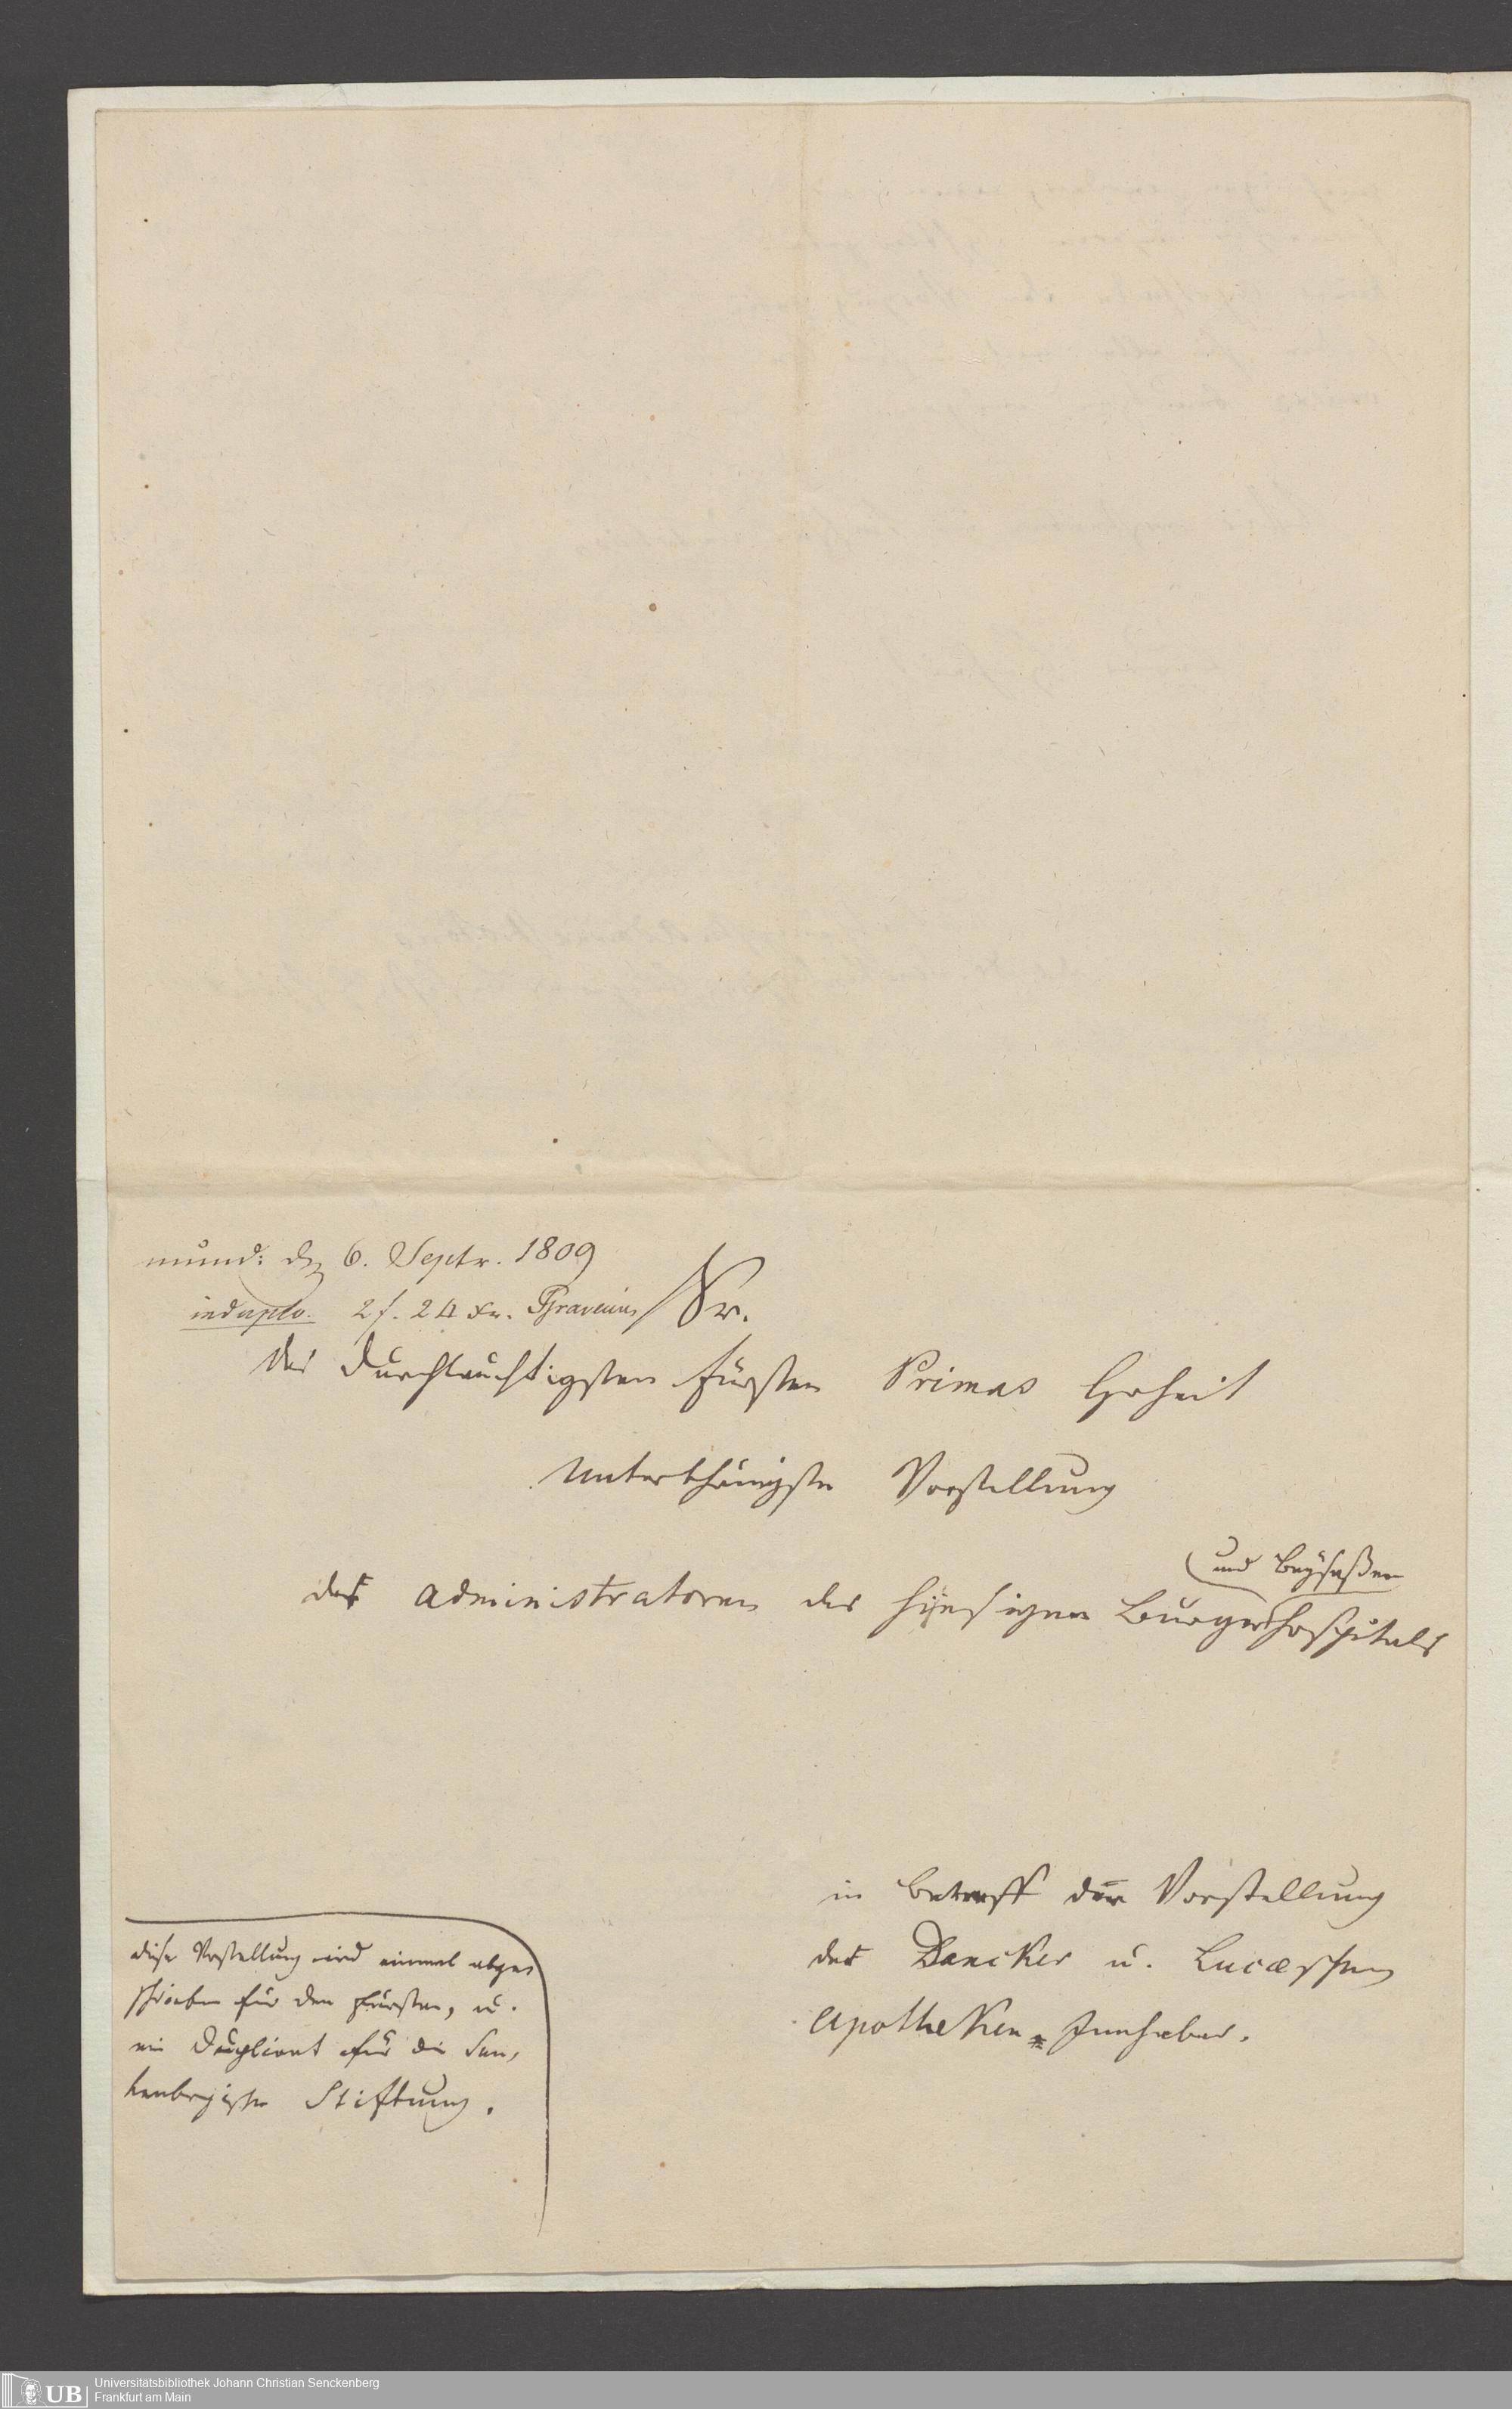 mund: dn 6. Septr. 1809
in duplo. 2 f. 24 xr. Graveius / Sr.
des Durchlauchtigsten Fürsten Primas Hoheit
Unterthänigste Vorstellung
und Beysaßen
der Administratoren des hiesigen Bürgerhospitals
in Betreff der Vorstellung
der Dancker u. Lucaeschen
Apotheken-Innhaber.
diese Vorstellung wird einmal abge,
schrieben für den Fürsten, u.
ein Duplicat für die Sen,
kenbergische Stiftung.
UB Universitätsbibliothek Johann Christian Senckenberg
Frankfurt am Main